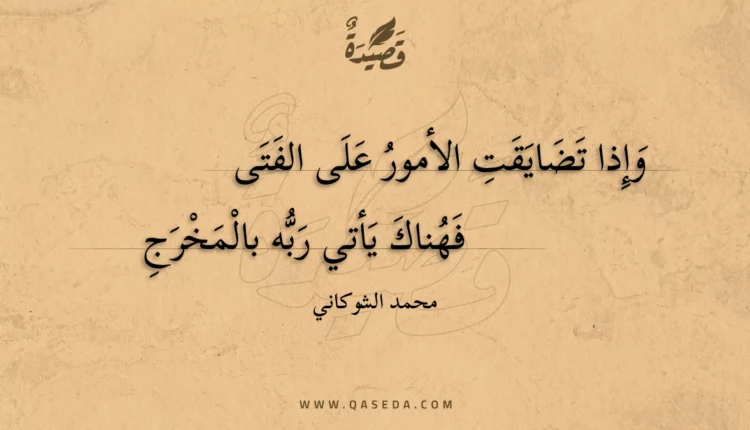 قَصِيْدَةٌ
وَإِذا تَضَايَقَتِ الأمورُ عَلَى الفَتَى
فَهُناكَ يَأتي رَبُّه بالْمَخْرَجِ
محمد الشوكاني
WWW.QASEDA.COM